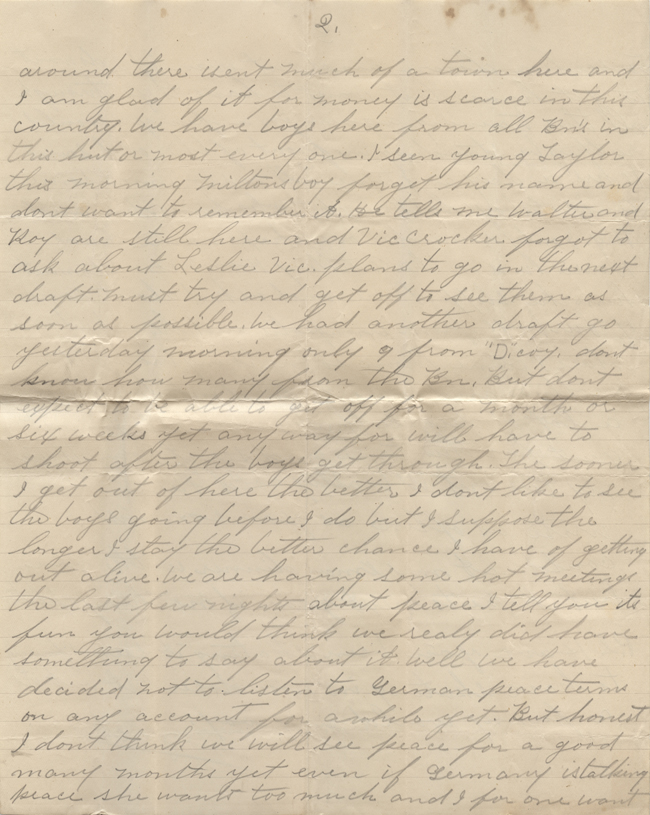 2.
around there isent much of a town here and
I am glad of it for money is scarce in this
country. We have boys here from all Bn's in
this hut or most every one. I seen young Taylor
this morning Miltons boy forget his name and
dont want to remember it. He tells me Walter and
Roy are still here and Vic Crocker forgot to
ask about Leslie Vic. plans to go in the next
draft. Must try and get off to see them as
soon as possible. We had another draft go
yesterday morning only 9 from "D. coy. dont
know how many from the Bn. But dont
expect to be able to get off for a month or
six weeks yet any way for will have to
shoot after the boys get through. The sooner
I get out of here the better I dont like to see
the boys going before I do but I suppose the
longer I stay the better chance I have of getting
out alive. We are having some hot meetings
the last few nights about peace I tell you its
fun you would think we realy did have
something to say about it. Well we have
decided not to listen to German peace terms
on any account for awhile yet. But honest
I dont think we will see peace for a good
many months yet even if Germany is talking
peace she wants too much and I for one want